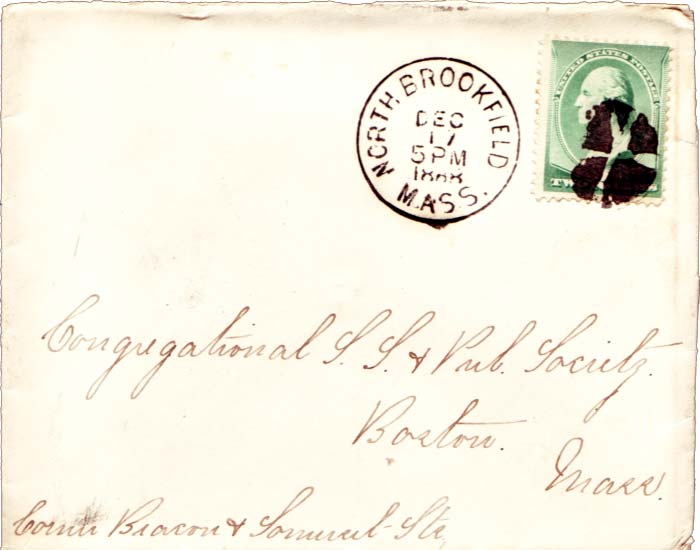 NORTH BROOKFIELD
DEC
17
5PM
1888
MASS.
UNITED STATES POSTAGE
TWO
Congregational S. S. & Pub. Society.
Boston.
Mass.
Corner Beacon & Somerset Sts